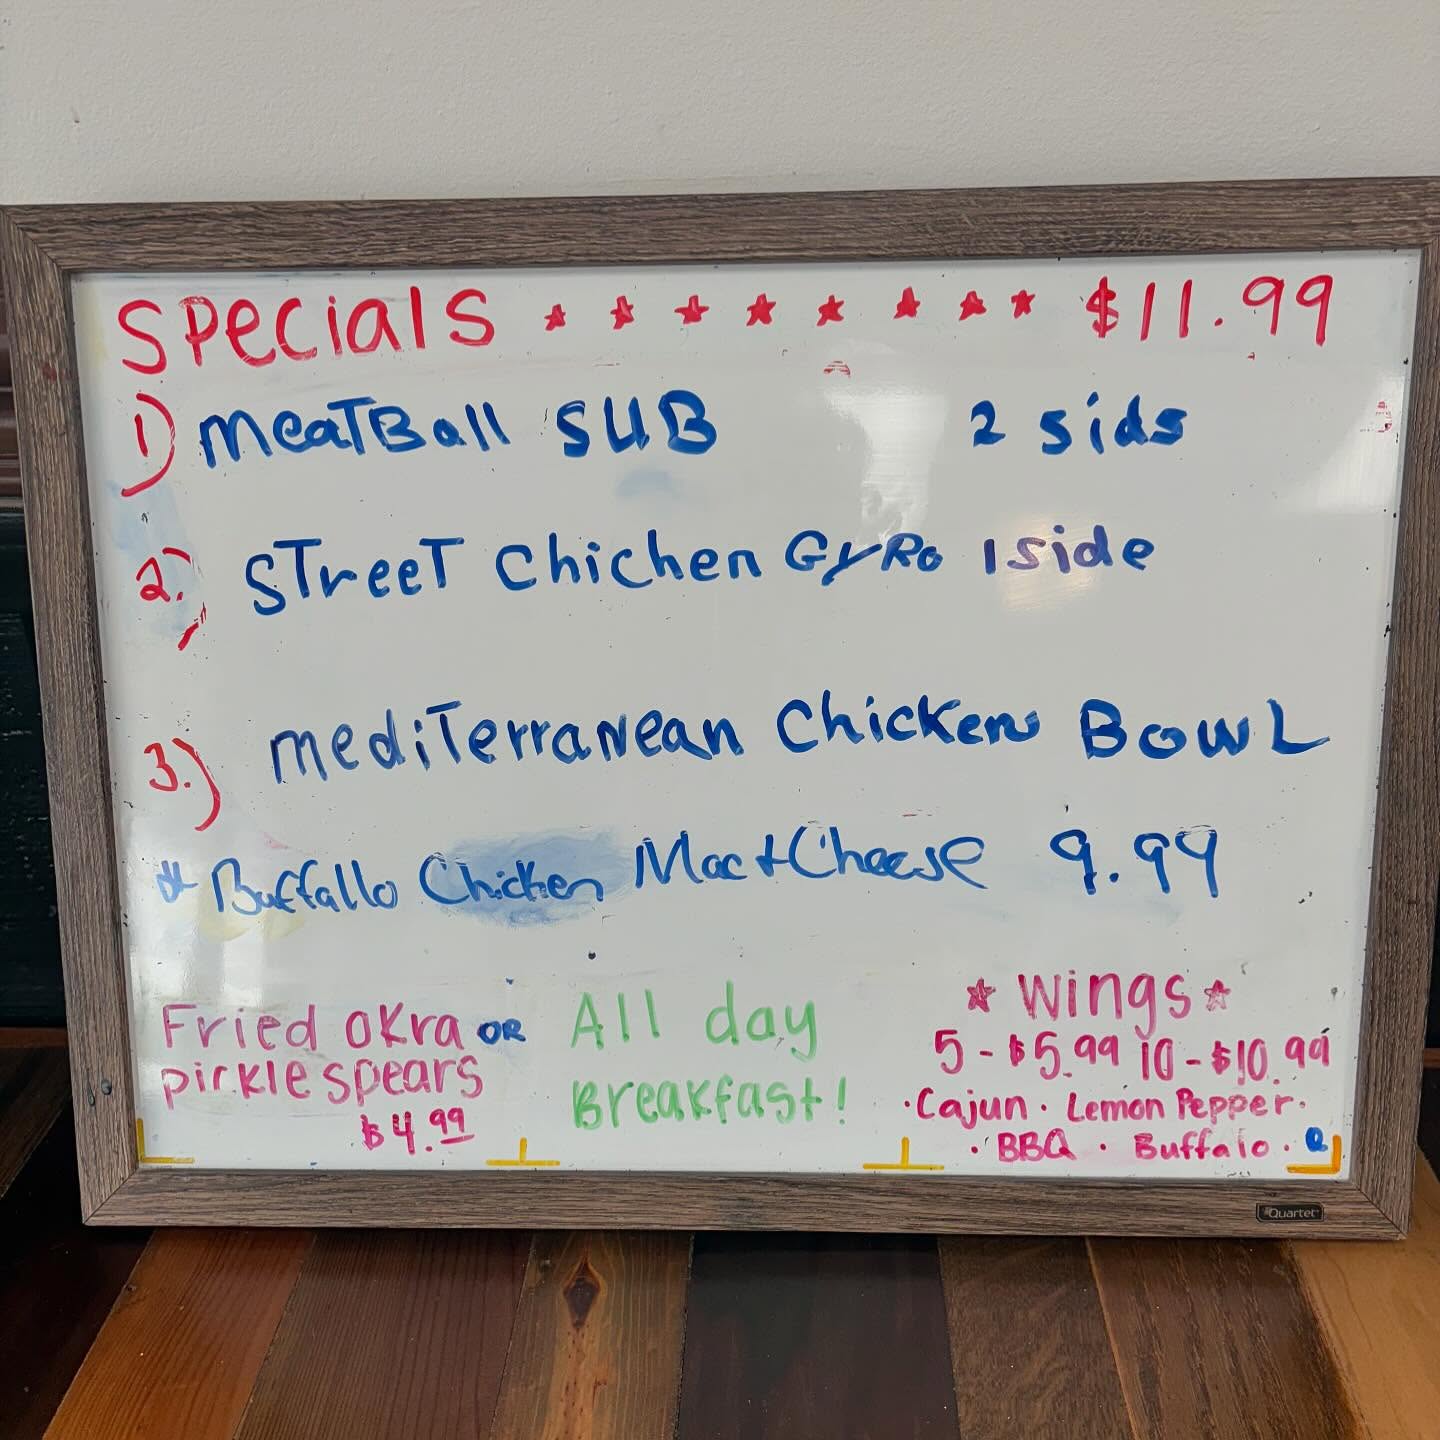 Specials $11.99
1) MeatBall SUB 2 sids
2.) Street Chichen GyRo 1 Side
3.) Mediterranean Chicken Bowl
* Buffallo Chicken Mac + Cheese 9.99
Fried okra OR
pickle spears
$4.99
All day
Breakfast!
Wings
5 - $5.99 10 - $10.99
· Cajun · Lemon Pepper ·
· BBQ · Buffalo ·
Quartet